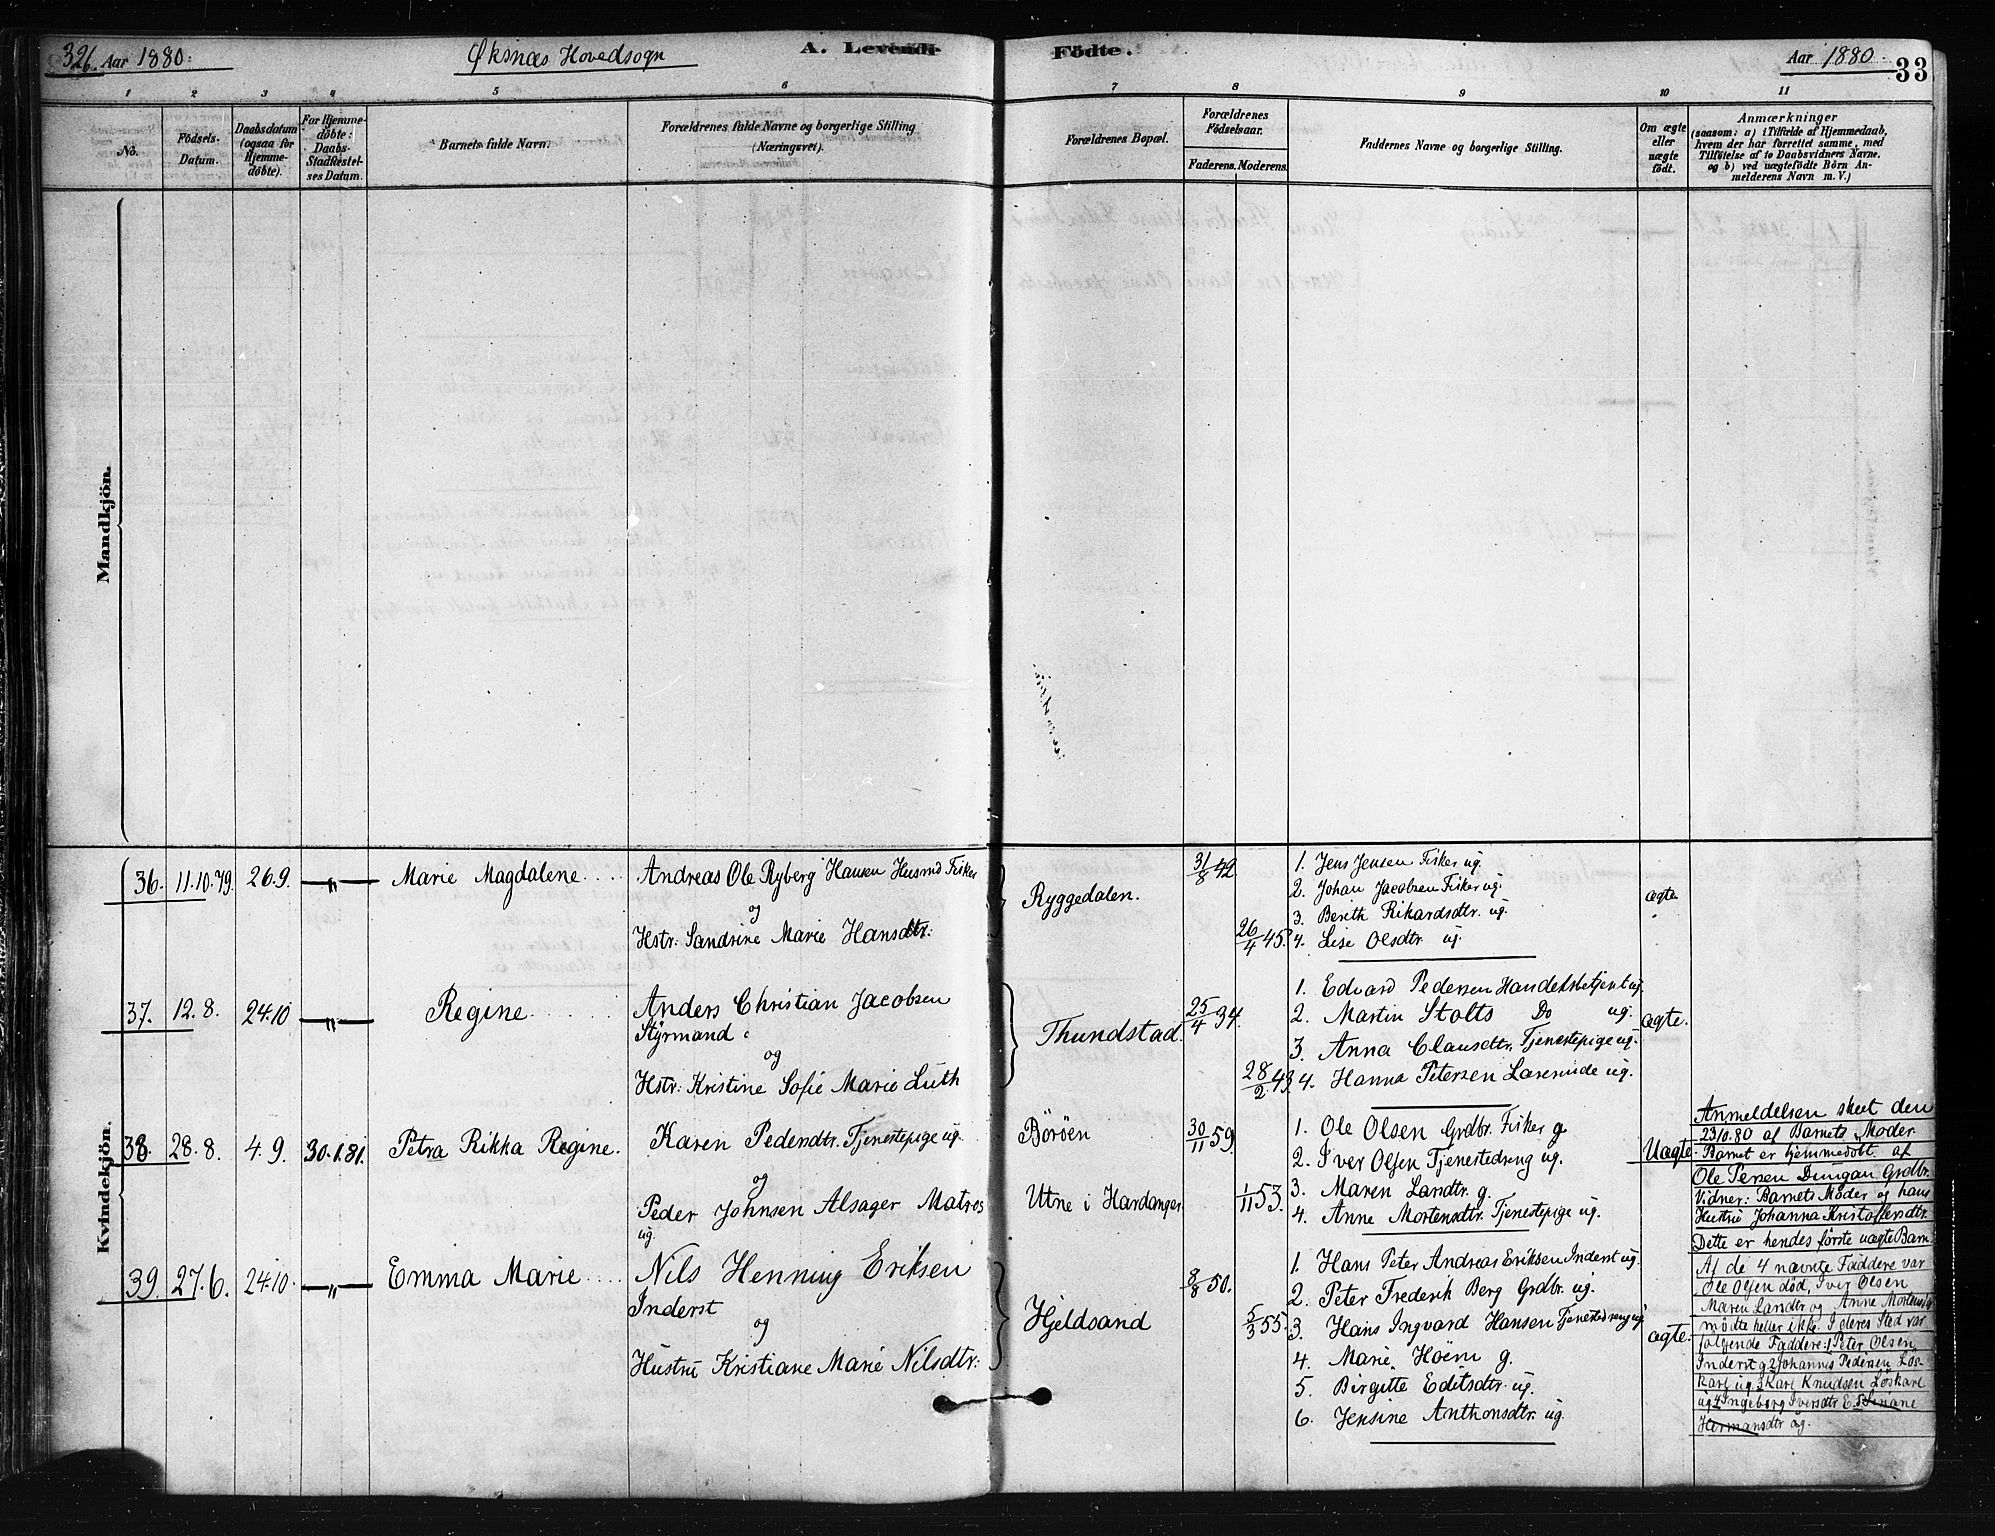 326. Aar 1880. Øksnæs Hovedsogn A. Levende Fødte. Aar 1880. 33
1 2 3 4 5 6 7 8 9 10 11
No.
Födsels-
Datum.
Daabsdatum
(ogsaa for
Hjemme-
döbte).
For Hjemme-
döbte:
Daabs-
Stadfæstel-
ses Datum.
Barnets fulde Navn.
Forældrenes fulde Navne og borgerlige Stilling
(Næringsvei).
Forældrenes Bopæl.
Forældrenes
Födselsaar.
Faderens. Moderens.
Faddernes Navne og borgerlige Stilling.
Om ægte
eller
uægte
födt.
Anmærkninger
(saasom: a) i Tilfælde af Hjemmedaab,
hvem der har forrettet samme, med
Tilföielse af to Daabsvidners Navne,
og b) ved uægtefödte Börn An-
melderens Navn m. V.)
Mandkjön.
Kvindekjön.
36. 11.10.79. 26.9. —„— Marie Magdalene....
Andreas Ole Ryberg Hansen Husmd Fisker
og
Hstr: Sandrine Marie Hansdtr:
Ryggedalen.
31/8 42
26/4 45.
1. Jens Jensen Fisker ug.
2. Johan Jacobsen Fisker ug.
3. Berith Rikardsdtr. ug.
4. Lise Olsdtr ug.
ægte
37. 12.8. 24.10 —„— Regine......
Anders Christian Jacobsen
Styrmand
og
Hstr: Kristine Sofie Marie Luth
Thundstad.
25/4 34.
28/2 43.
1. Edvard Pedersen Handelsbetjent ug
2. Martin Stolts Do ug.
3. Anna Clausdtr. Tjenestepige ug.
4. Hanna Petersen Lærerinde ug.
ægte.
38. 28.8. 4.9. 30.1.81. Petra Rikka Regine.
Karen Pedersdtr. Tjenestepige ug.
og
Peder Johnsen Alsager Matros
ug.
Börøen
Utne i Hardanger.
30/11 59.
1/11 53.
1. Ole Olsen Grdbr. Fisker g
2. Iver Olsen Tjenestedreng ug.
3. Maren Landtr. g.
4. Anne Mortensdtr. Tjenestepige ug.
Uægte.
Anmeldelsen skeet den
23.10.80 af Barnets Moder.
Barnet er hjemmedöbt af
Ole Persen Dungan Grdbr.
Vidner: Barnets Moder og hans
Hustru Johanna Kristoffersdtr.
Dette er hendes förste uægte Barn.
Af de 4 nævnte Faddere var
Ole Olsen död, Iver Olsen
Maren Landtr og Anne Mortensdtr
mödte heller ikke. I deres Sted var
følgende Faddere: 1 Peter Olsen
Inderst g 2 Johannis Pedersen Lös-
karl ug 3 Karl Knudsen Löskarl
ug 4 Ingeborg Iversdtr E.
Hermansdtr ug.
39. 27.6. 24.10. —„— Emma Marie....
Nils Henning Eriksen
Inderst
og
Hustru Kristiane Marie Nilsdtr:
Hjeldsand
8/8 50.
5/3 55.
1. Hans Peter Andreas Eriksen Inderst ug.
2. Peter Frederik Berg Grdbr. ug.
3. Hans Ingvard Hansen Tjenestedreng ug.
4. Marie Høem g.
5. Birgitte Editsdtr. ug.
6. Jensine Anthonsdtr. ug.
ægte.